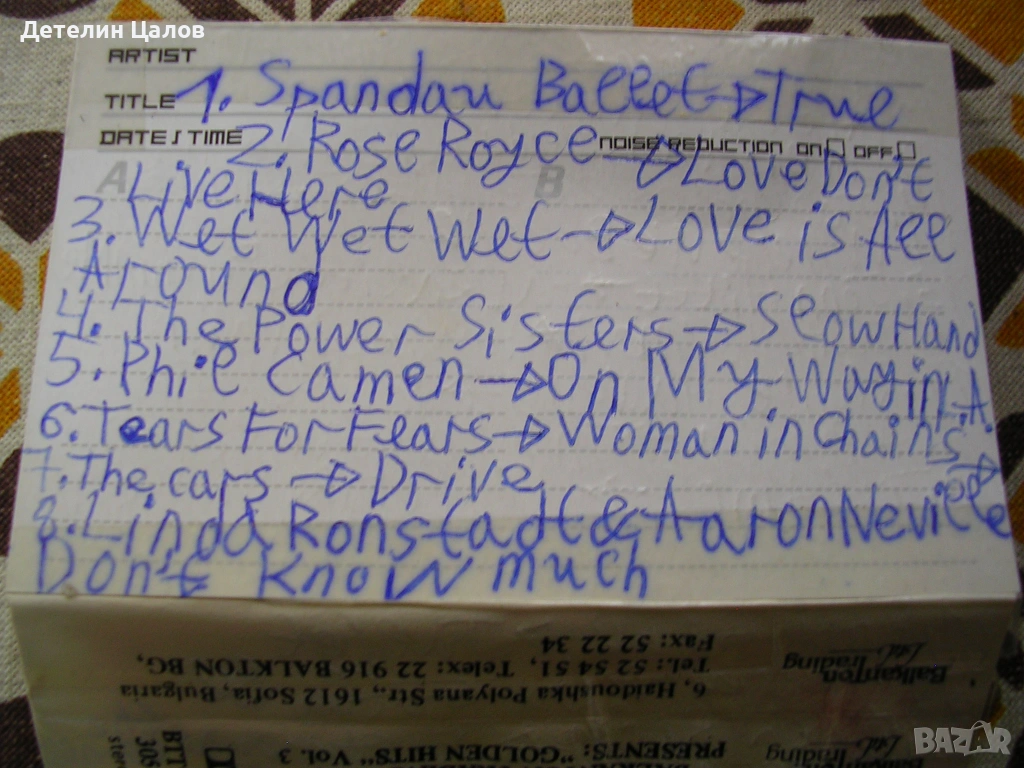 Детелин Цалов
ARTIST
TITLE 1. Spandau Ballet → True
DATE / TIME 2. Rose Royce NOISE REDUCTION ON OFF → Love Don't
A Live Here B
3. Wet Wet Wet → Love is All
Around
4. The Power Sisters → Slow Hand
5. Phil Camen → On My Way in .A.
6. Tears For Fears → Woman in Chains
7. The cars → Drive
8. Linda Ronstadt & Aaron Neville →
Don't Know much
Balkanton Trading Ltd.
6, Haidoushka Polyana Str., 1612 Sofia, Bulgaria
Tel.: 52 54 51, Telex: 22 916 BALKTON BG,
Fax: 52 22 34
Trading Ltd.
PRESENTS: "GOLDEN HITS" Vol. 3
BTT
305
ster
BAZAR